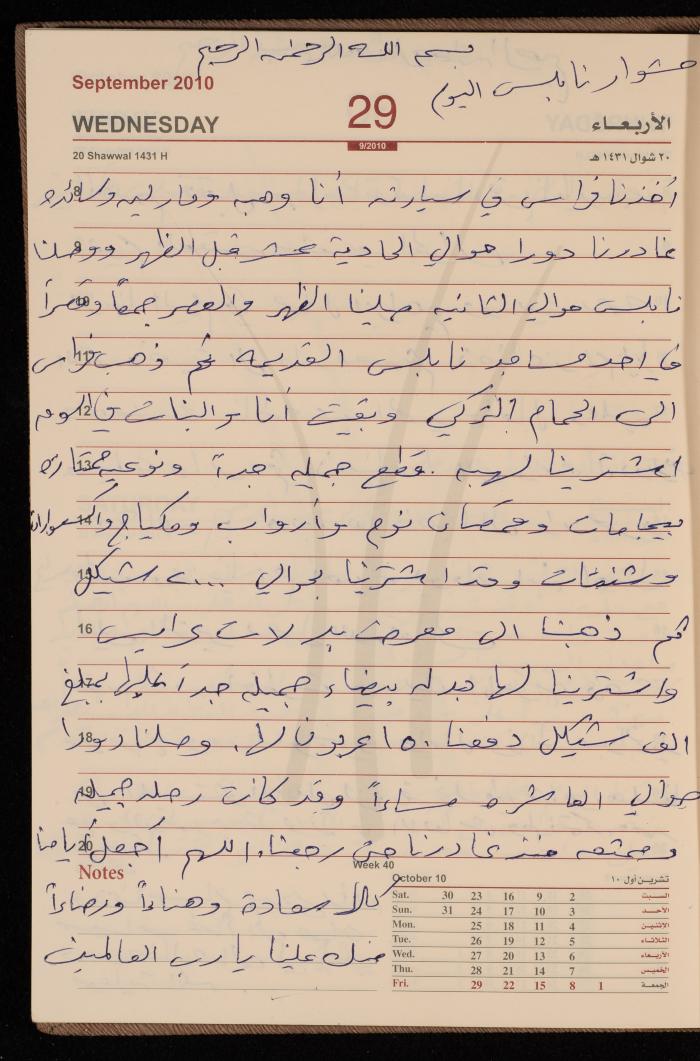 بسم الله الرحمن الرحيم
مشوار نابلس اليوم
September 2010
WEDNESDAY
29
9/2010
الأربعاء
20 Shawwal 1431 H
٢٠ شوال ١٤٣١ هـ
أخذنا فراس في سيارته أنا وهبه وماريه وسائده
8
غادرنا دورا حوالي الحادية عشر قبل الظهر ووصلنا
9
نابلس حوالي الثانيه صلينا الظهر والعصر جمعاً وقصراً
10
في احد مساجد نابلس القديمه ثم ذهب فراس
11
الى الحمام التركي وبقيت أنا والبنات في السوم
12
اشترينا لهبه قطع جميله جداً ونوعيه ممتازه
13
بيجامات وقمصان نوم وأرواب ومكياج واكسسوارات
14
وشنطات وقد اشترينا بحوالي ٢٠٠٠ شيكل
15
ثم ذهبنا الى معرض بدلات عرايس
16
واشترينا لها بدله بيضاء جميله جداً عليها بمبلغ
17
الف شيكل دفعنا ١٥٠ عربون لها. وصلنا دورا
18
حوالي العاشره مساءاً وقد كانت رحله جميله
19
وممتعه منذ غادرنا حتى رجعنا. اللهم أجعل أيامنا
20
Notes
كلها سعادة وهناءاً ورضاءاً
منك علينا يا رب العالمين
Week 40
October 10
تشرين أول ١٠
Sat. 30 23 16 9 2 السبت
Sun. 31 24 17 10 3 الأحد
Mon. 25 18 11 4 الاثنين
Tue. 26 19 12 5 الثلاثاء
Wed. 27 20 13 6 الأربعاء
Thu. 28 21 14 7 الخميس
Fri. 29 22 15 8 1 الجمعة